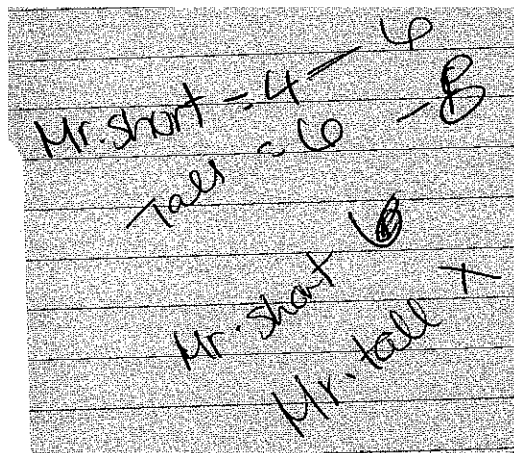 Mr. short = 4 — 6
Tall = 6 — 8
Mr. short 6
Mr. tall X